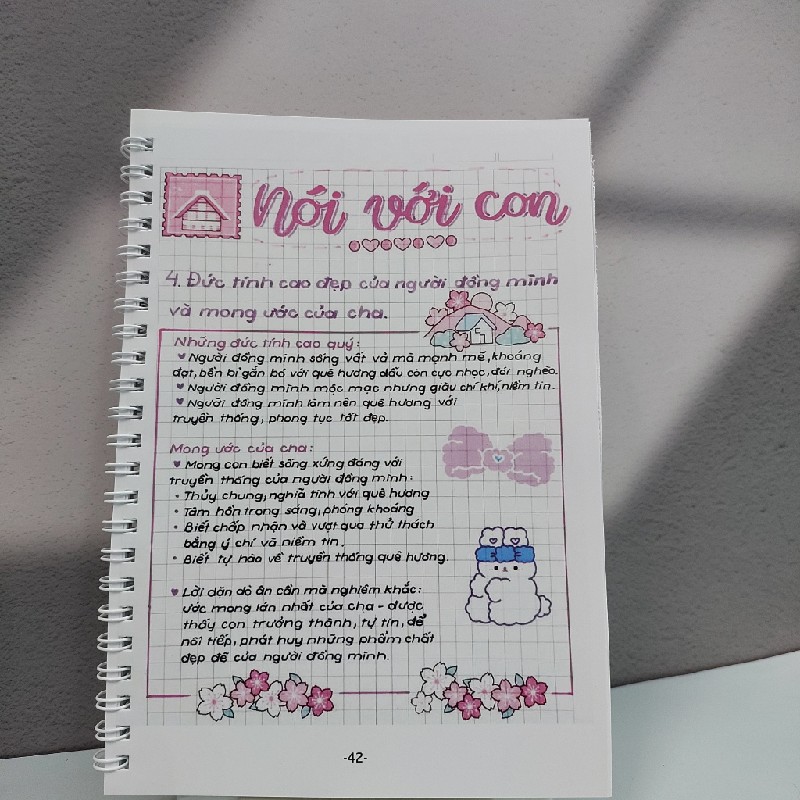 Nói với con
4. Đức tính cao đẹp của người đồng mình
và mong ước của cha.
Những đức tính cao quý:
Người đồng mình sống vất vả mà mạnh mẽ, khoáng
đạt, bền bỉ gắn bó với quê hương dẫu còn cực nhọc, đói nghèo.
Người đồng mình mộc mạc nhưng giàu chí khí, niềm tin.
Người đồng mình làm nên quê hương với
truyền thống, phong tục tốt đẹp.
Mong ước của cha:
Mong con biết sống xứng đáng với
truyền thống của người đồng mình:
• Thủy chung, nghĩa tình với quê hương
• Tâm hồn trong sáng, phóng khoáng
• Biết chấp nhận và vượt qua thử thách
bằng ý chí và niềm tin.
• Biết tự hào về truyền thống quê hương.
Lời dặn dò ân cần mà nghiêm khắc:
ước mong lớn nhất của cha - được
thấy con trưởng thành, tự tin, để
nối tiếp, phát huy những phẩm chất
đẹp đẽ của người đồng mình.
-42-